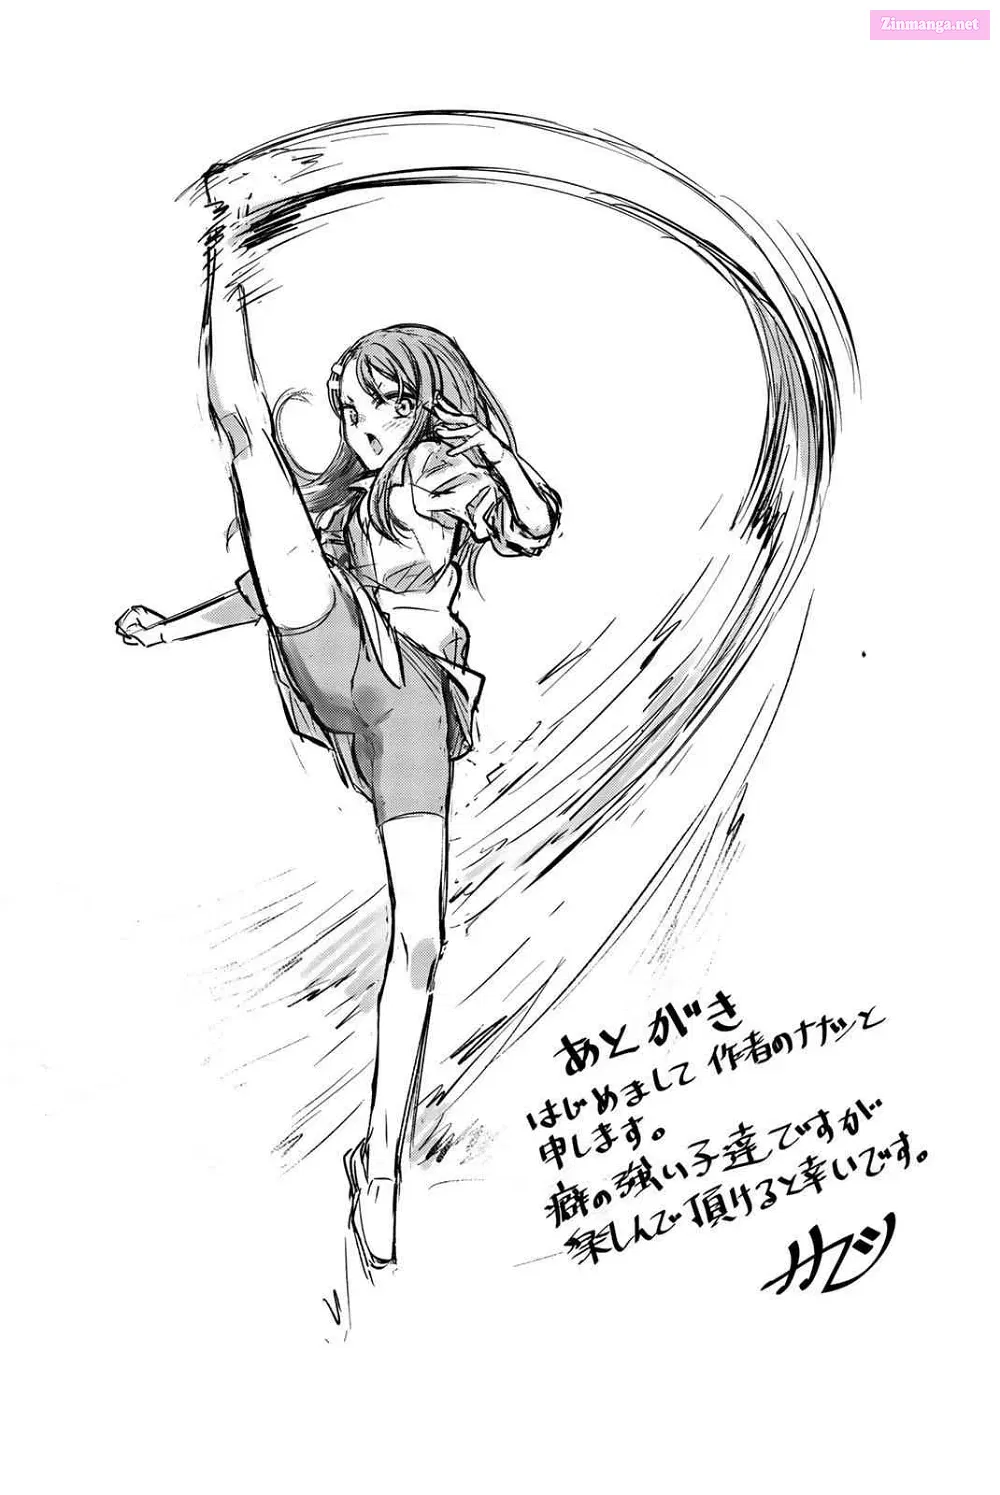 Zinmanga.net
あとがき
はじめまして 作者のナナツと
申します。
癖の強い子達ですが
楽しんで頂けると幸いです。
ナナツ